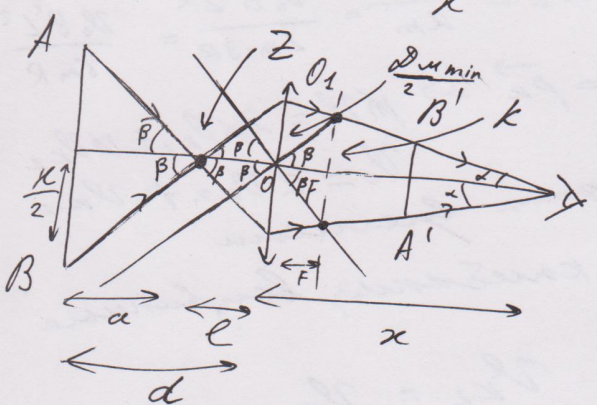 A
Z
O₁
𝒟м min
2
B'
K
β
β
β
β
β
β
β
O
βF
α
α
H
2
B
F
A'
a
l
x
d